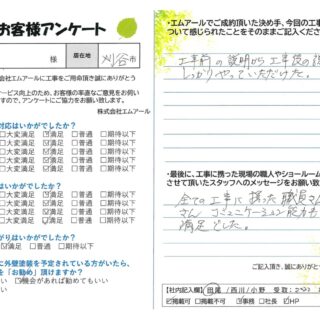 お客様アンケート
様 居住地 刈谷市
式会社エムアールに工事をご用命頂き誠にありがとう
ービス向上のため、お客様の率直なご意見をお伺い
すので、アンケートにご協力をお願い致します。
株式会社エムアール
対応はいかがでしたか？
□大変満足 ☑満足 □普通 □期待以下
□大変満足 ☑満足 □普通 □期待以下
□大変満足 ☑満足 □普通 □期待以下
はいかがでしたか？
□大変満足 ☑満足 □普通 □期待以下
□大変満足 ☑満足 □普通 □期待以下
□大変満足 ☑満足 □普通 □期待以下
がでしたか？
☑満足 □普通 □期待以下
に外壁塗装を予定されている方がいたら、
を「お勧め」頂けますか？
い ☑機会があれば勧めてもいい
い
・エムアールでご成約頂いた決め手、今回の工事
ついて感じられたことをそのままご記入くださ
工事前の説明から工事後の
しっかりやっていただけた。
・最後に、工事に携った現場の職人やショールーム
させて頂いたスタッフへのメッセージをお願い致
全ての工事に携った職員さん
さん コミュニケーション能力
満足でした。
ご記入頂き、誠にありがと
【社内記入欄】 田尾 / 西川 / 小野 受取：
☑掲載可 □掲載不可 ☑事務 □社長 ☑HP